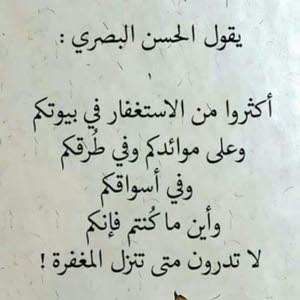 يقول الحسن البصري :
أكثروا من الاستغفار في بيوتكم
وعلى موائدكم وفي طُرقكم
وفي أسواقكم
وأين ما كُنتم فإنكم
لا تدرون متى تنزل المغفرة !